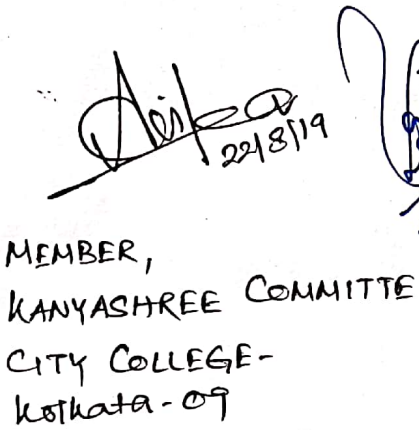 22/8/19
MEMBER,
KANYASHREE COMMITTE
CITY COLLEGE-
Kolkata-09